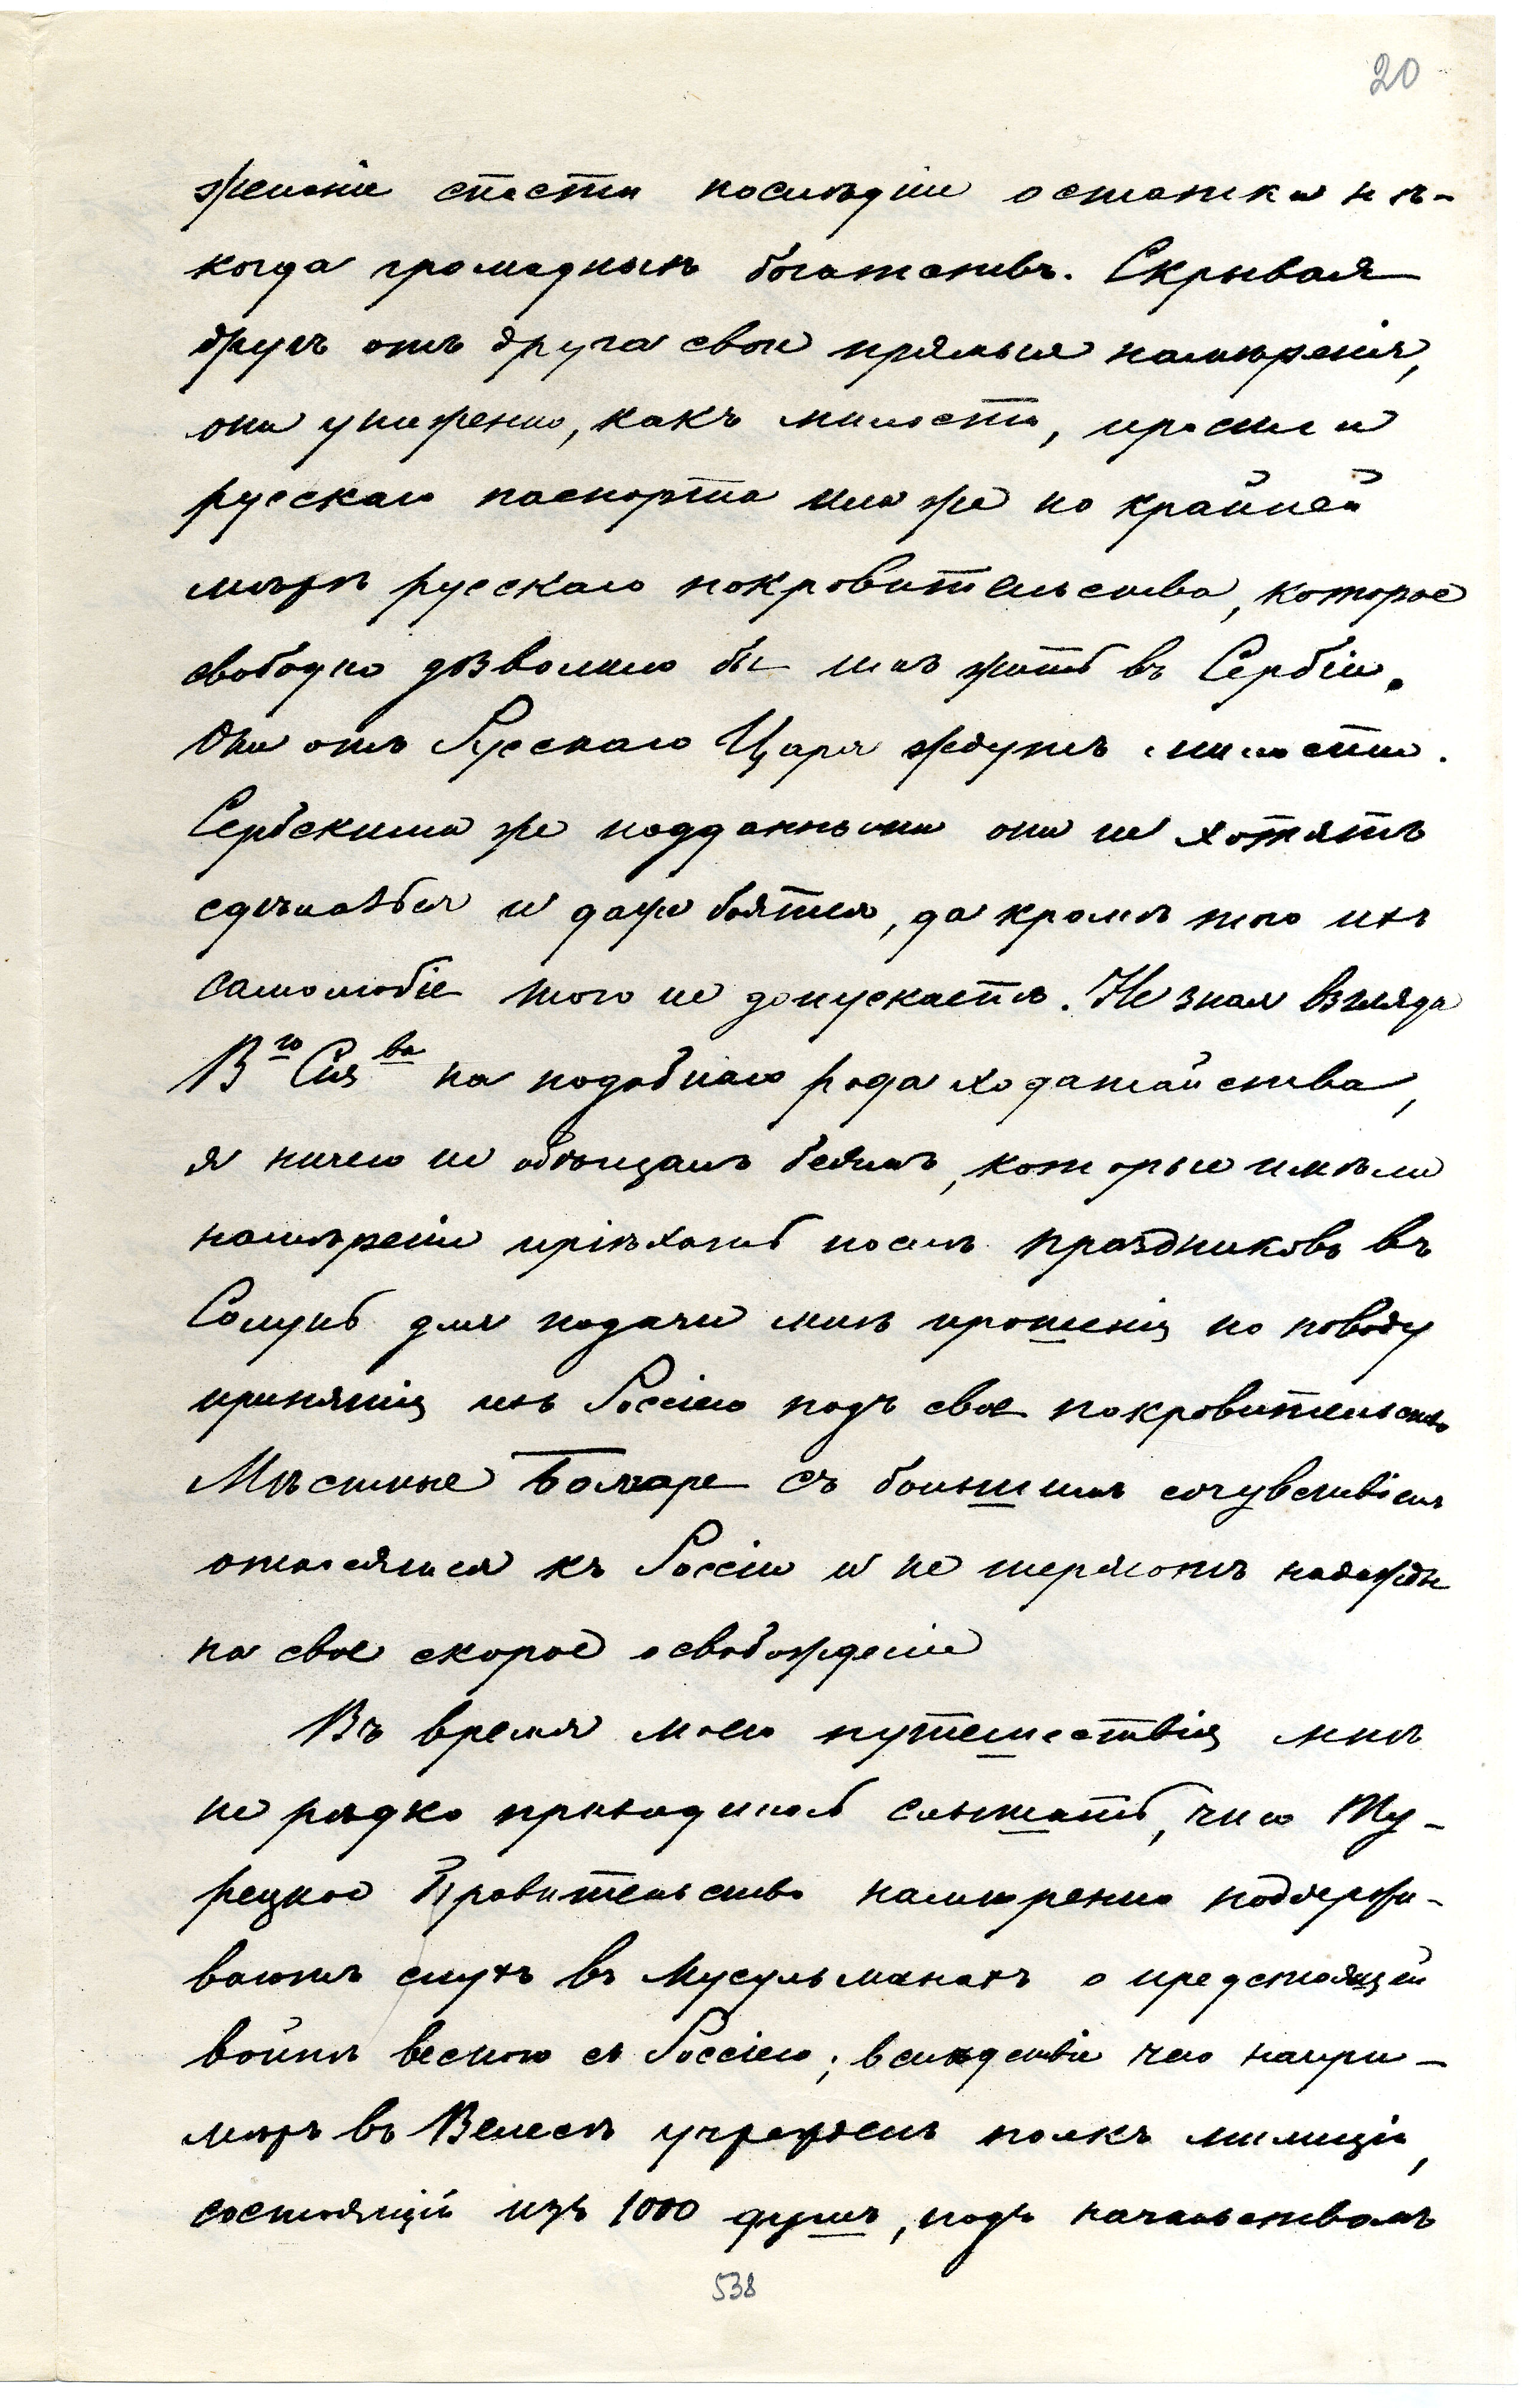 20
желаніе спасти послѣдніе остатки нѣ-
когда громадныхъ богатствъ. Скрывая
другъ отъ друга свои прямыя намѣренія,
они униженно, какъ милости, просили
русскаго паспорта или же по крайней
мѣрѣ русскаго покровительства, которое
свободно дозволило бы имъ жить въ Сербіи.
Они отъ Русскаго Царя ждутъ милости.
Сербскими же подданными они не хотятъ
сдѣлаться и даже боятся, да кромѣ того ихъ
самолюбіе того не допускаетъ. Не зная взгляда
В<sup>го</sup> Сія<sup>ва</sup> на подобнаго рода ходатайства,
я ничего не обѣщалъ беямъ, которые имѣли
намѣреніе пріѣхать послѣ праздниковъ въ
Солунь для подачи мнѣ прошенія по поводу
принятія ихъ Россіею подъ свое покровительство
Мѣстные Болгаре съ большимъ сочувствіемъ
относятся къ Россіи и не теряютъ надежды
на свое скорое освобожденіе
Въ время моего путешествія мнѣ
не рѣдко приходилось слышать, что Ту-
рецкое Правительство намѣренно поддержи-
ваютъ слухъ въ Мусульманахъ о предстоящей
войнѣ весною съ Россіею; вслѣдствіе чего напри-
мѣръ въ Велесѣ учрежденъ полкъ милиціи,
состоящій изъ 1000 душъ, подъ начальствомъ
538